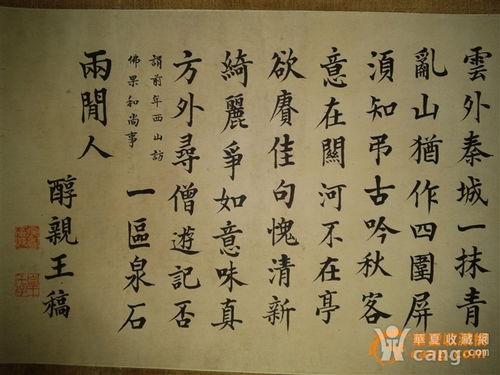 雲外秦城一抹青
亂山猶作四圍屏
須知弔古吟秋客
意在關河不在亭
欲賡佳句愧清新
綺麗爭如意味真
方外尋僧遊記否
謂前年西山訪
佛果和尚事
一區泉石
兩閒人
醇親王稿
華夏收藏網
cang.com